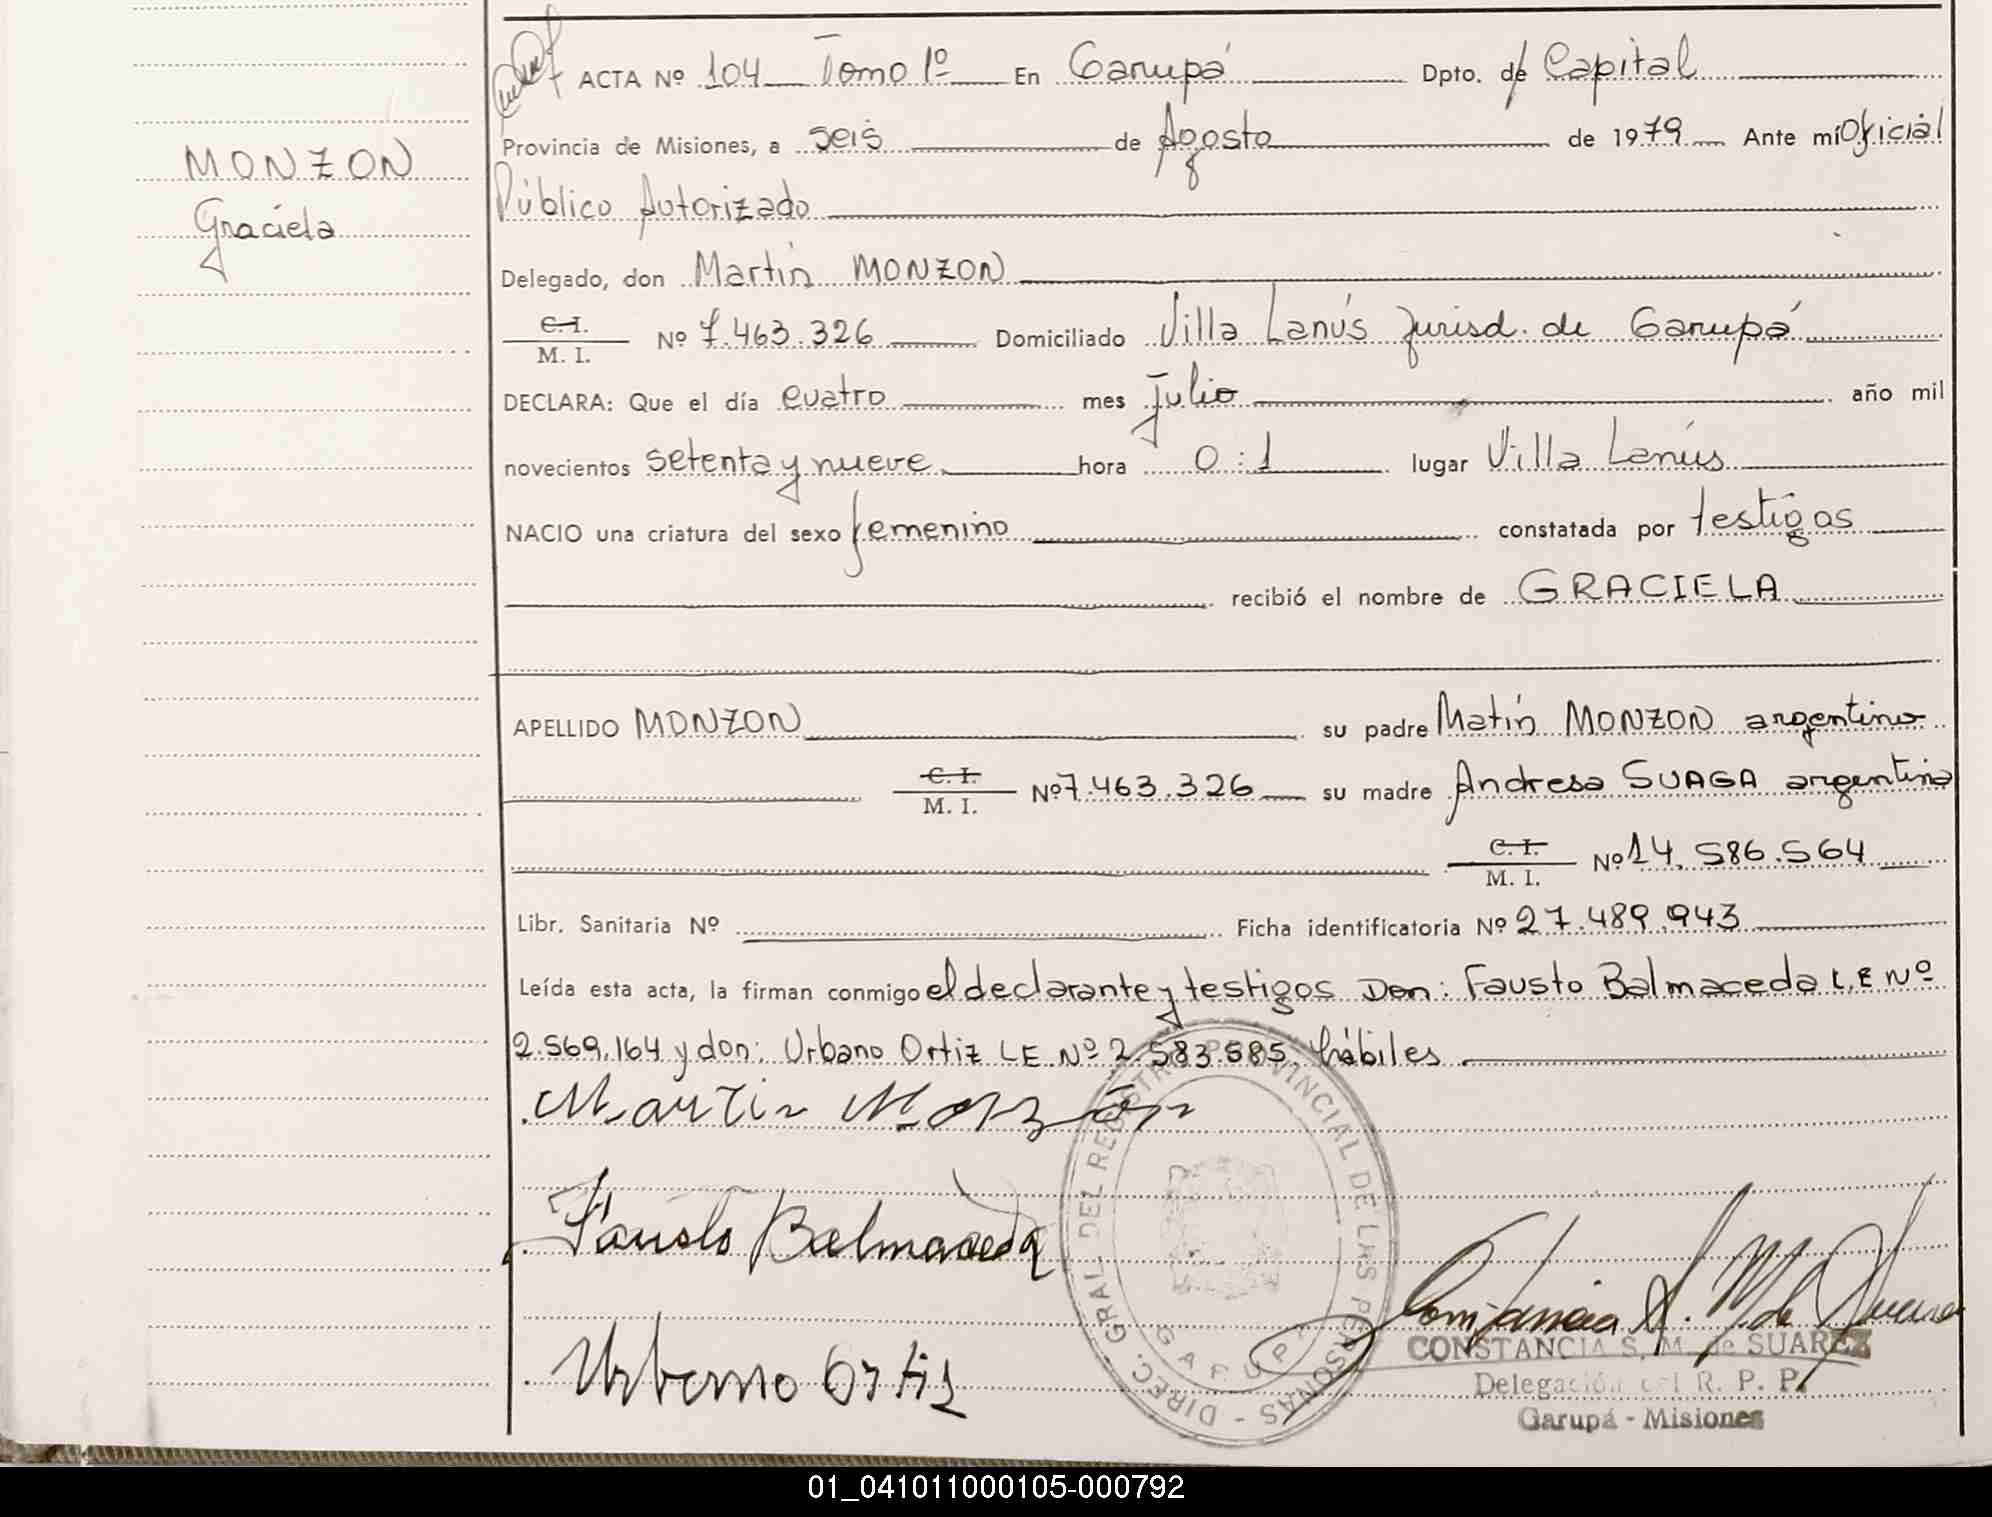 ACTA Nº 104 Tomo 1º En Garupá Dpto. de Capital
Provincia de Misiones, a seis de Agosto de 1979 Ante mí Oficial
MONZON
Público Autorizado
Graciela
Delegado, don Martín MONZON
C. I.
M. I. Nº 7.463.326 Domiciliado Villa Lanús Jurisd. de Garupá
DECLARA: Que el día cuatro mes Julio año mil
novecientos setenta y nueve hora 0:1 lugar Villa Lanús
NACIO una criatura del sexo femenino constatada por testigos
recibió el nombre de GRACIELA
APELLIDO MONZON su padre Matín MONZON argentino
C. I.
M. I. Nº 7.463.326 su madre Andresa SUAGA argentina
C. I.
M. I. Nº 14.586.564
Libr. Sanitaria Nº Ficha identificatoria Nº 27.489.943
Leída esta acta, la firman conmigo el declarante y testigos Don: Fausto Balmaceda L.E Nº
2.569.164 y don: Urbano Ortiz LE. Nº 2.583.585. hábiles.
Martin Monzón
Fausto Balmaceda
Urbano Ortis
DIREC. GRAL. DEL REGISTRO PROVINCIAL DE LAS PERSONAS -
GARUPA
Constancia S. M. de Suarez
CONSTANCIA S. M. de SUAREZ
Delegación del R. P. P.
Garupá - Misiones
01_041011000105-000792